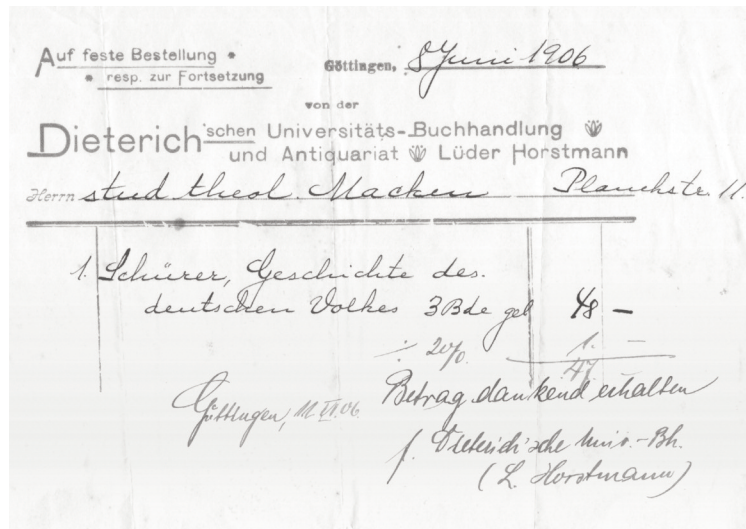 Auf feste Bestellung
resp. zur Fortsetzung
Göttingen, 8 Juni 1906
von der
Dieterich'schen Universitäts-Buchhandlung
und Antiquariat Lüder Horstmann
Herrn stud theol. Macken Planckstr. 11.
1. Schürer, Geschichte des.
deutschen Volkes 3 Bde gel 48 —
·/. 2% 1. —
47
Betrag dankend erhalten
Göttingen, 11 VI 06
f. Dieterich'sche Univ.-Bh.
(L. Horstmann)